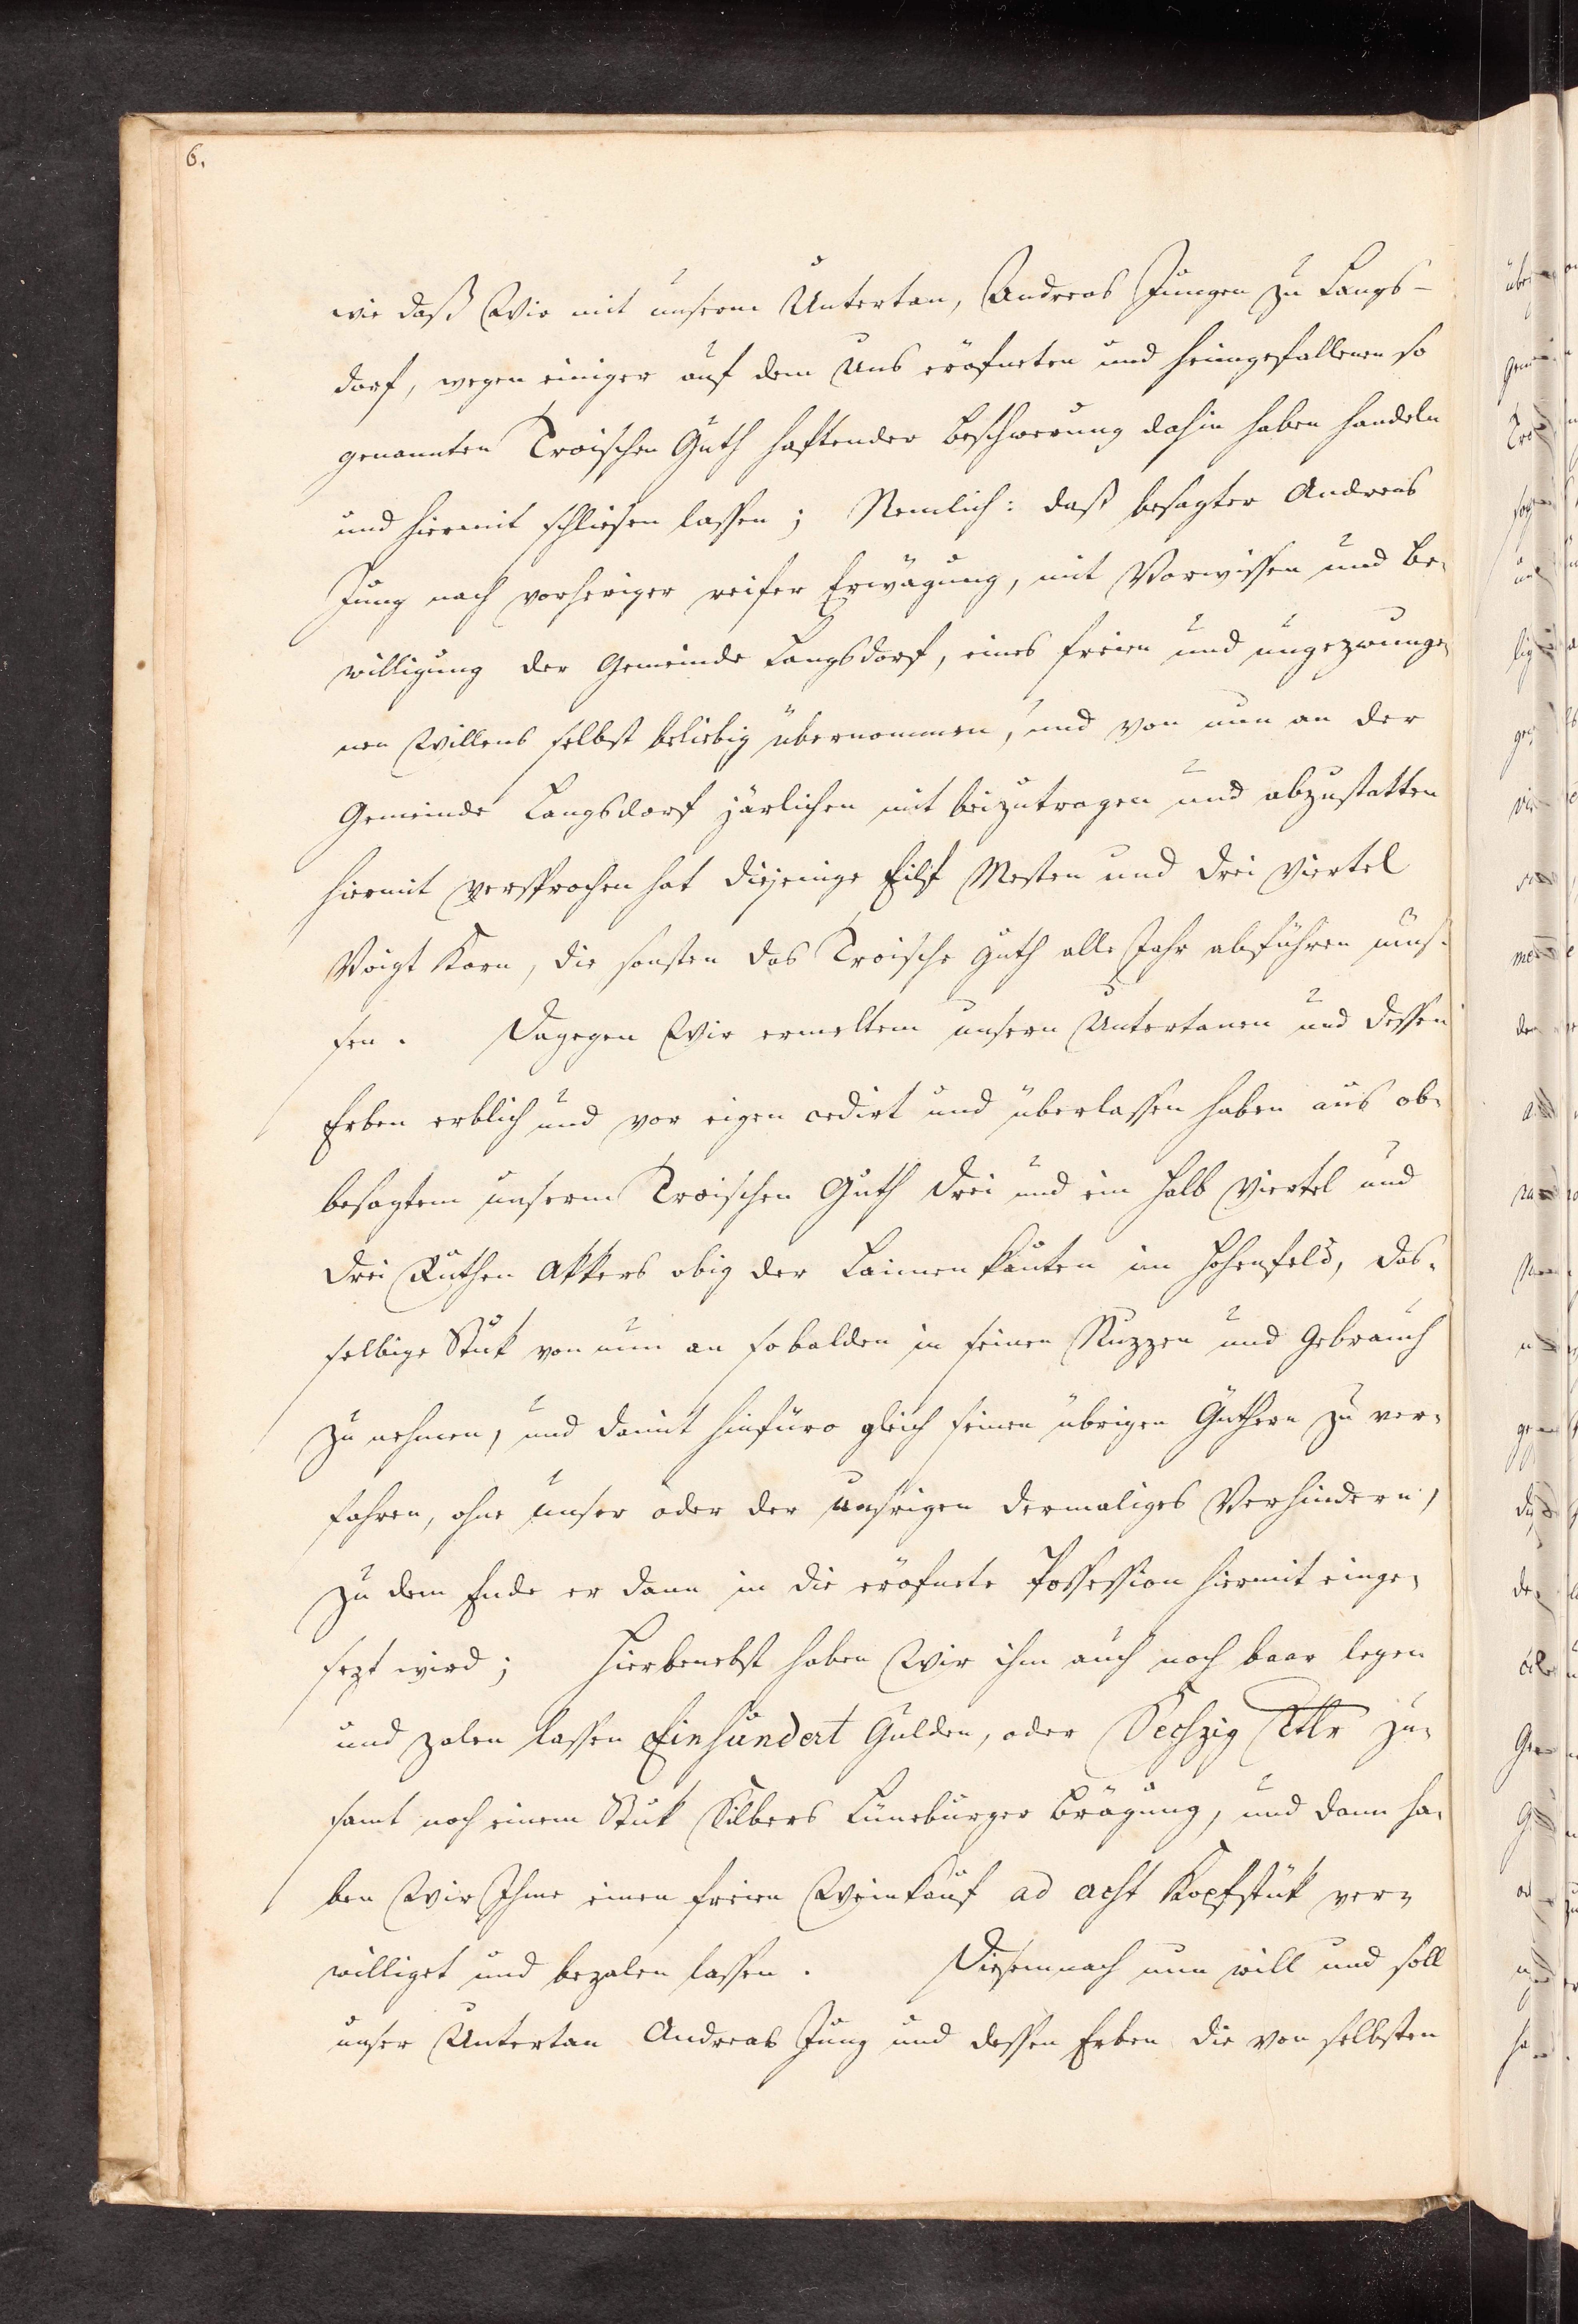 6.
wie daß Wir mit unserm Untertan, Andreas Jungen zu Langs-
dorf, wegen einiger auf dem Uns eröfneten und heimgefallenen so
genannten Troischen Guth haftender Beschwerung dahin haben handeln
und hiermit schliesen lassen; Nemlich: daß besagter Andreas
Jung nach vorheriger reifer Erwägung, mit Vorwissen und Be-
willigung der Gemeinde Langsdorf, eines freien und ungezwunge-
nen Willens selbst beliebig übernommen, und von nun an der
Gemeinde Langsdorf järlichen mit beizutragen und abzustatten
hiermit versprochen hat diejenige Eilf Mesten und drei Viertel
Voigt Korn, die sonsten das Troische Guth alle Jahr abführen müs-
sen. Dagegen Wir ermeltem unsern Untertanen und dessen
Erben erblich und vor eigen cedirt und überlassen haben aus ob-
besagtem unserm Troischen Guth drei und ein halb Viertel und
drei Ruthen Akkers obig der Laimen Kauten im Hohenfeld, das-
selbige Stük von nun an sobalden in seinen Nuzzen und Gebrauch
zu nehmen, und damit hinfüro gleich seinen übrigen Güthern zu ver-
fahren, ohne unser oder der unsrigen dermaliges Verhindern,
zu dem Ende er dann in die eröfnete Possession hiermit einge-
sezt wird; Hierbenebst haben Wir ihm auch noch baar legen
und zalen lassen Einhundert Gulden, oder Sechzig Rtlr zu-
samt noch einem Stük Silbers Lüneburger Brägung, und dann ha-
ben Wir Ihme einen freien Weinkauf ad acht Kopfstük ver-
williget und bezalen lassen. Diesemnach nun will und soll
unser Untertan Andreas Jung und dessen Erben die von selbsten